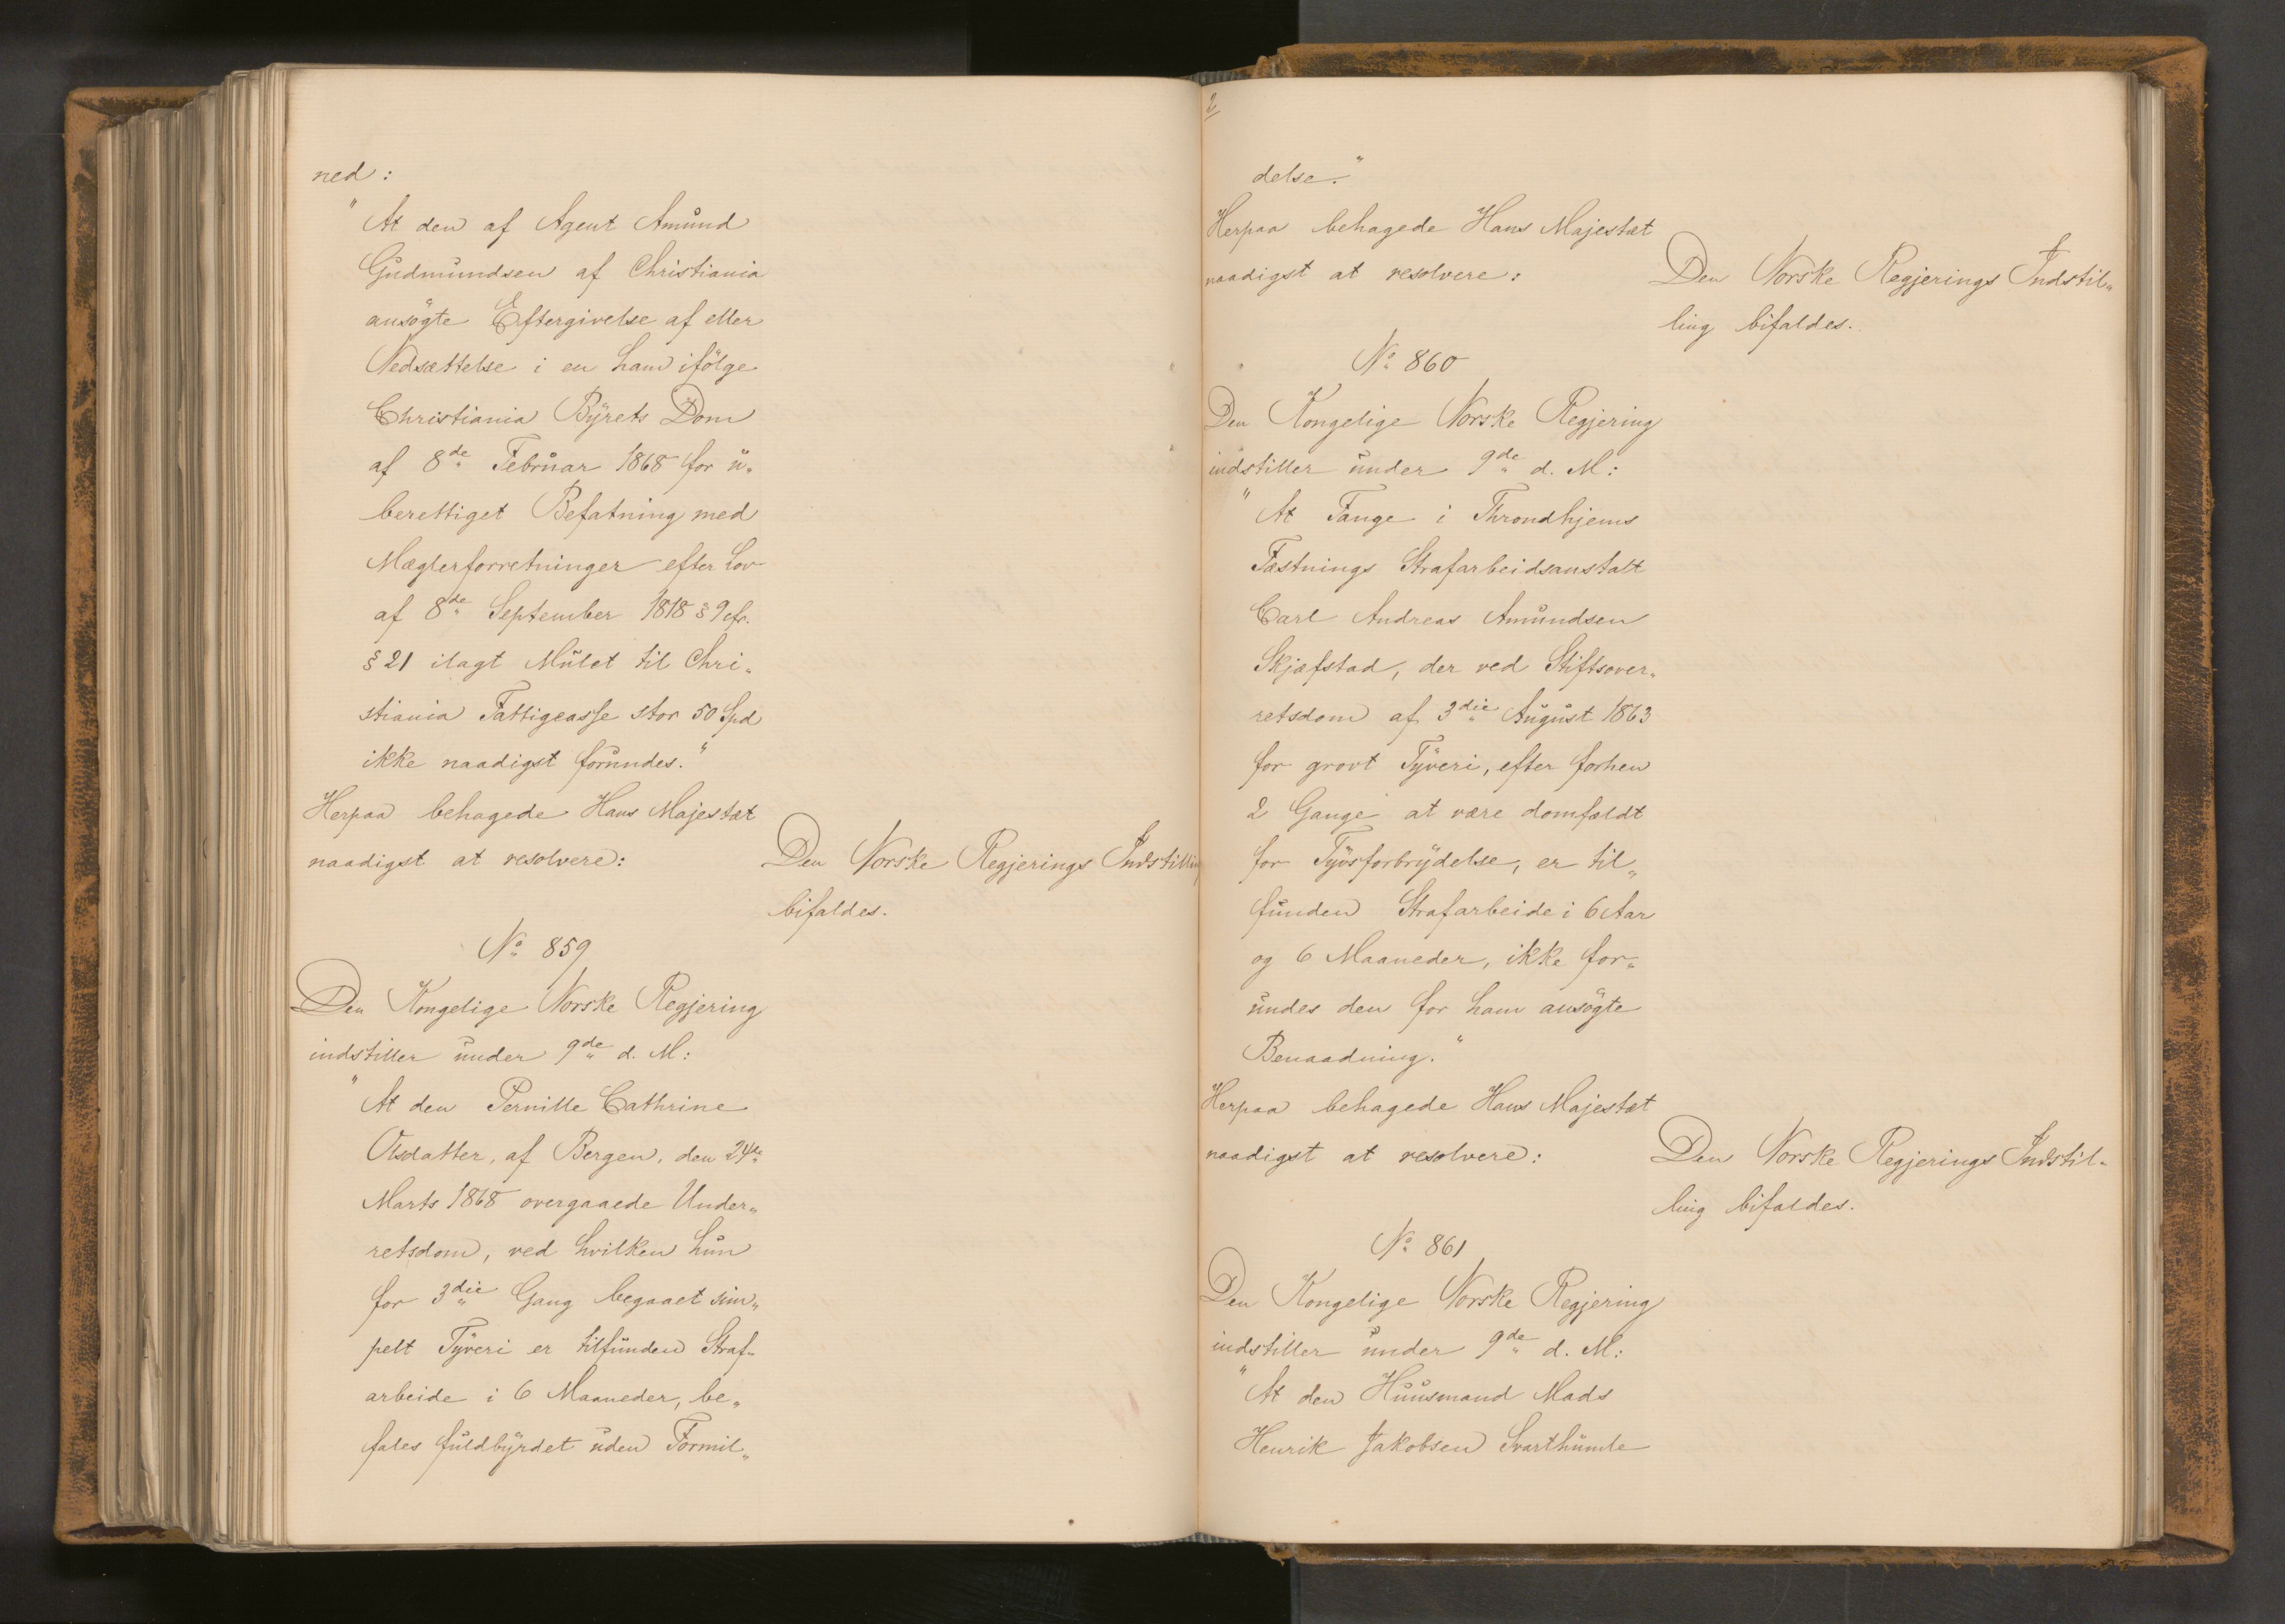 ned:
"At den af Agent Amund
Gudmundsen af Christiania
ansögte Eftergivelse af eller
Nedsættelse i en ham ifölge
Christiania Byrets Dom
af 8de Februar 1868 for u-
berettiget Befatning med
Mæglerforretninger efter Lov
af 8de September 1818 § 9 cfr.
§ 21 ilagt Mulct til Chri-
stiania Fattigcasse stor 50 Spd
ikke naadigst forundes."
Herpaa behagede Hans Majestæt
naadigst at resolvere:
Den Norske Regjerings Indstilling
bifaldes.
No 859
Den Kongelige Norske Regjering
indstiller under 9de d. M:
"At den Pernille Cathrine
Olsdatter, af Bergen, den 24de
Marts 1868 overgaaede Under-
retsdom, ved hvilken hun
for 3die Gang begaaet sim-
pelt Tyveri er tilfunden Straf-
arbeide i 6 Maaneder, be-
fales fuldbyrdet uden Formil-
2
delse."
Herpaa behagede Hans Majestæt
naadigst at resolvere:
Den Norske Regjerings Indstil-
ling bifaldes.
No 860
Den Kongelige Norske Regjering
indstiller under 9de d. M:
"At Fange i Throndhjems
Fæstnings Strafarbeidsanstalt
Carl Andreas Amundsen
Skjæfstad, der ved Stiftsover-
retsdom af 3die August 1863
for grovt Tyveri, efter forhen
2 Gange at være domfældt
for Tyvsforbrydelse, er til-
funden Strafarbeide i 6 Aar
og 6 Maaneder, ikke for-
undes den for ham ansögte
Benaadning."
Herpaa behagede Hans Majestæt
naadigst at resolvere:
Den Norske Regjerings Indstil-
ling bifaldes.
No 861
Den Kongelige Norske Regjering
indstiller under 9de d. M:
"At den Huusmand Mads
Henrik Jakobsen Svarthumle